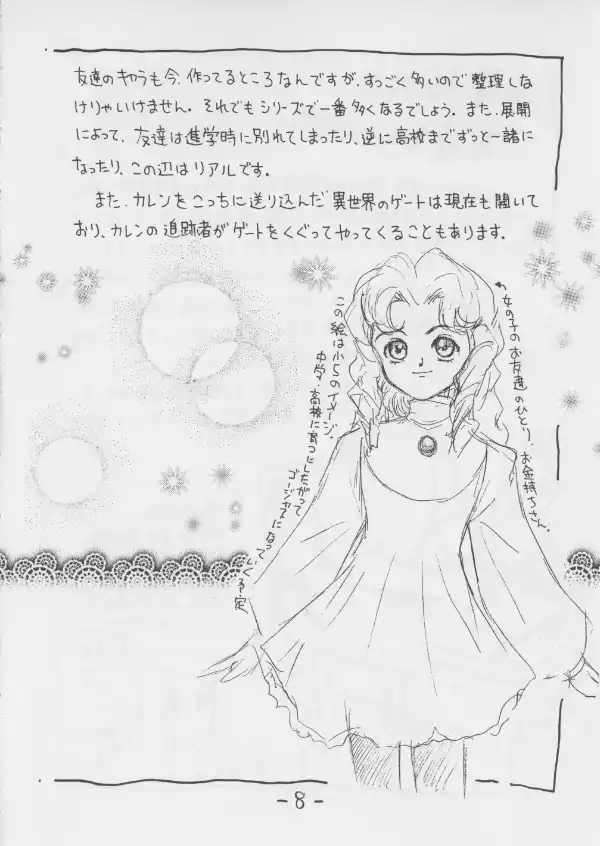 友達のキャラも今、作ってるところなんですが、すっごく多いので整理しな
けりゃいけません。それでもシリーズで一番多くなるでしょう。また、展開
によって、友達は進学時に別れてしまったり、逆に高校までずっと一諸に
なったり、この辺はリアルです。
また、カレンをこっちに送り込んだ異世界のゲートは現在も開いて
おり、カレンの追跡者がゲートをくぐってやってくることもあります。
女の子のお友達のひとり、お金持ちさん。
この絵は小5のイメージ。
中学、高校に育つにしたがって
ゴージャスになっていく予定
-8-